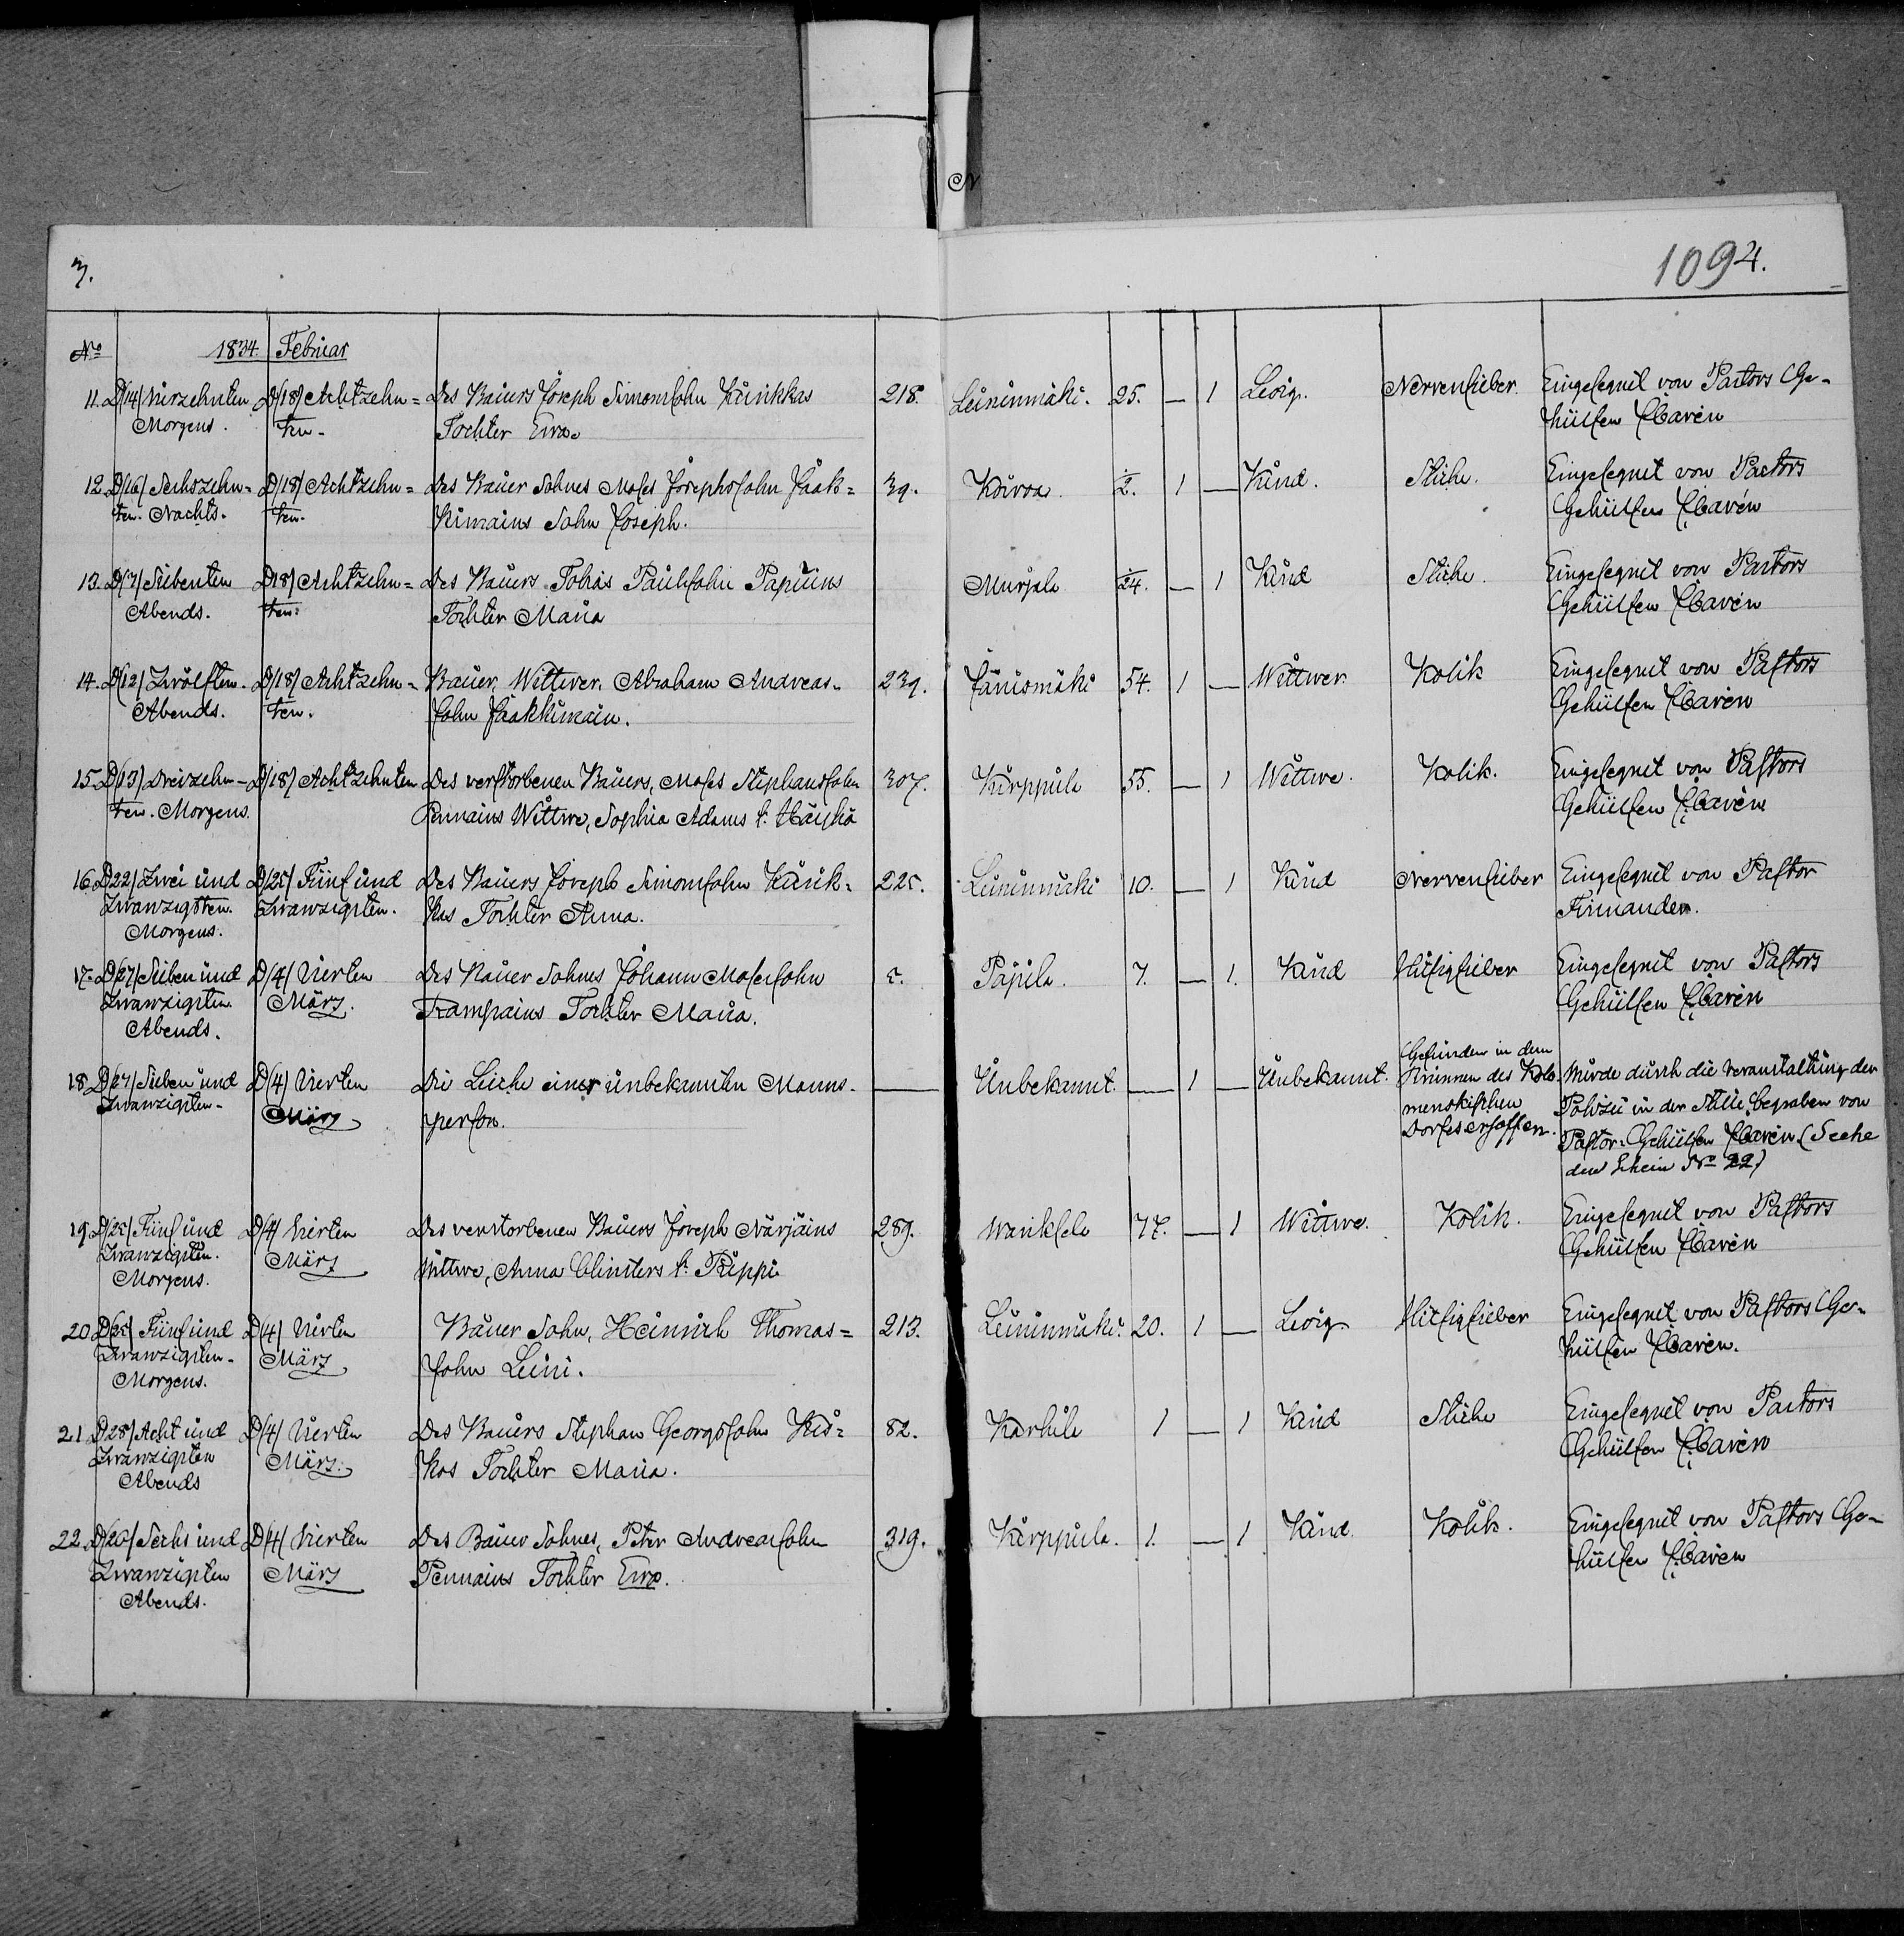 3.
1094.
N
№ 1834. Februar
11. D/14/ Vierzehnten D/18/ Achtzehn= Des Bauers Joseph Simonsohn Kurikkas 218. Leininmäki. 25. — 1 Ledig. Nervenfieber. Eingesegnet von Pastors Ge-
Morgens. ten. Tochter Ewa. hülfen
12. D/16/ Sechszehn= D/18/ Achtzehn= Des Bauer Sohnes Moses Josephssohn Jaak= 39. 2. 1 — Kind. Eingesegnet von Pastors
ten. Nachts. ten. kimains Sohn Joseph. Gehülfen
13. D/7/ Siebenten D/18/ Achtzehn= Des Bauers Tobias Paulssohn 24. — 1 Kind Eingesegnet von Pastors
Abends. ten. Tochter Maria Gehülfen
14. D/12/ Zwölften. D/18/ Achtzehn= Bauer, Wittwer, Abraham Andreas= 239. Jänismäki 54. 1 — Wittwer Kolik Eingesegnet von Pastors
Abends. ten. sohn Jaakkimain. Gehülfen
15. D/13/ Dreizehn- D/18/ Achtzehnten Des verstorbenen Bauers, Moses Stephanssohn 307. Kirppula 55. — 1 Wittwe. Kolik. Eingesegnet von Pastors
ten. Morgens. Pennains Wittwe, Sophia Adams t. Gehülfen
16. D/22/ Zwei und D/25/ Fünf und Des Bauers Joseph Simonsohn Kurik= 225. Leininmäki 10. — 1 Kind Nervenfieber Eingesegnet von Pastor
Zwanzigsten. Zwanzigsten. kas Tochter Anna.
Morgens.
17. D/27/ Sieben und D/4/ Vierten Des Bauer Sohnes Johann Mosessohn 5. Päjilä. 7. — 1. Kind Hitzigfieber Eingesegnet von Pastors
Zwanzigsten. März. Tochter Maria. Gehülfen
Abends.
18. D/27/ Sieben und D/4/ Vierten Die Leiche einer unbekannten Manns- — Unbekannt. — 1 — Unbekannt. Gefunden in dem Brunnen des Kolo- Wurde durch die Veranstaltung der
Zwanzigsten. März person. menskischen Polizei in der Stille begraben von
Dorfes ersoffen. Pastor-Gehülfen (Seehe
den Schein № 22)
19. D/25/ Fünf und D/4/ Vierten Des verstorbenen Bauers Joseph Närjäins 289. 77. — 1 Wittwe. Kolik. Eingesegnet von Pastors
Zwanzigsten. März Wittwe, Anna t. Gehülfen
Morgens.
20. D/25/ Fünf und D/4/ Vierten Bauer Sohn, Heinrich Thomas= 213. Leininmäki. 20. 1 — Ledig Hitzigfieber Eingesegnet von Pastors Ge-
Zwanzigsten. März sohn Leini. hülfen
Morgens.
21. D/28/ Acht und D/4/ Vierten Des Bauers Stephan Georgssohn 82. Karhila 1 — 1 Kind Eingesegnet von Pastors
Zwanzigsten März. kas Tochter Maria. Gehülfen
Abends
22. D/26/ Sechs und D/4/ Vierten Des Bauer Sohnes, Peter Andreassohn 319. Kirppula. 1. — 1 Kind. Kolik. Eingesegnet von Pastors Ge-
Zwanzigsten März Pennains Tochter Ewa. hülfen
Abends.